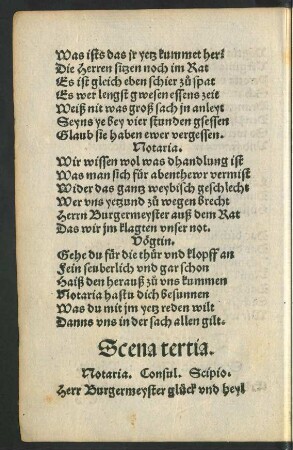 Was ists das jr yetz kummet her?
Die Herren sitzen noch im Rat
Es ist gleich eben schier zů spat
Es wer lengst gwesen essens zeit
Weiß nit was groß sach jn anleyt
Seyns ye bey vier stunden gsessen
Glaub sie haben ewer vergessen.
Notaria.
Wir wissen wol was dhandlung ist
Was man sich für abenthewr vermist
Wider das gantz weybisch geschlecht
Wer vns yetzund zů wegen brecht
Herrn Burgermeyster auß dem Rat
Das wir jm klagten vnser not.
Vögtin.
Gehe du für die thür vnd klopff an
Fein seuberlich vnd gar schon
Haiß den herauß zů vns kummen
Notaria hastu dich besunnen
Was du mit jm yetz reden wilt
Danns vns in der sach allen gilt.
Scena tertia.
Notaria. Consul. Scipio.
Herr Burgermeyster glück vnd heyl